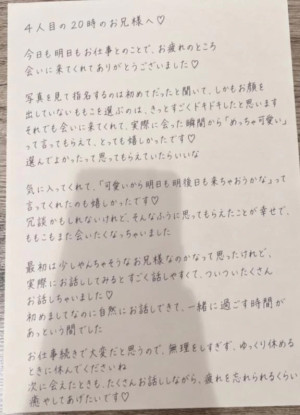 4人目の20時のお兄様へ♡
今日も明日もお仕事とのことで、お疲れのところ
会いに来てくれてありがとうございました♡
写真を見て指名するのは初めてだったと聞いて、しかもお顔を
出していないももこを選ぶのは、きっとすごくドキドキしたと思います
それでも会いに来てくれて、実際に会った瞬間から「めっちゃ可愛い」
って言ってもらえて、とっても嬉しかったです♡
選んでよかったって思ってもらえていたらいいな
気に入ってくれて、「可愛いから明日も明後日も来ちゃおうかな」って
言ってくれたのも嬉しかったです♡
冗談かもしれないけれど、そんなふうに思ってもらえたことが幸せで、
ももこもまた会いたくなっちゃいました
最初は少しやんちゃそうなお兄様なのかなって思ったけれど、
実際にお話ししてみるとすごく話しやすくて、ついついたくさん
お話しちゃいました♡
初めましてなのに自然にお話しできて、一緒に過ごす時間が
あっという間でした
お仕事続きで大変だと思うので、無理をしすぎず、ゆっくり休める
ときに休んでくださいね
次に会えたときも、たくさんお話ししながら、疲れを忘れられるくらい
癒やしてあげたいです♡